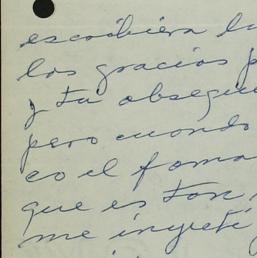 escribiera
los gracias p
y tu obsequ
pero cuando
co el foma
que es tan
me inqueté